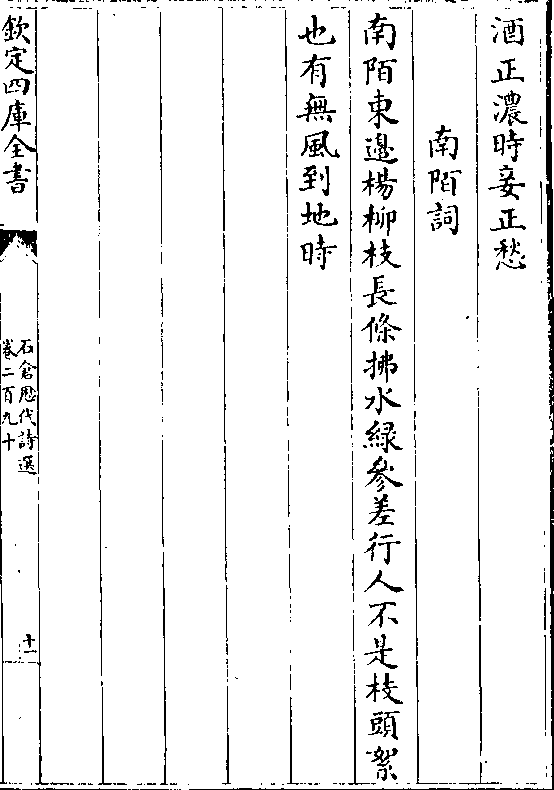 酒正濃時妾正愁
南陌詞
南陌東邉楊柳枝長條拂水緑參差行人不是枝頭絮
也有無風到地時
欽定四庫全書
石倉歴代詩選
卷二百九十
十一